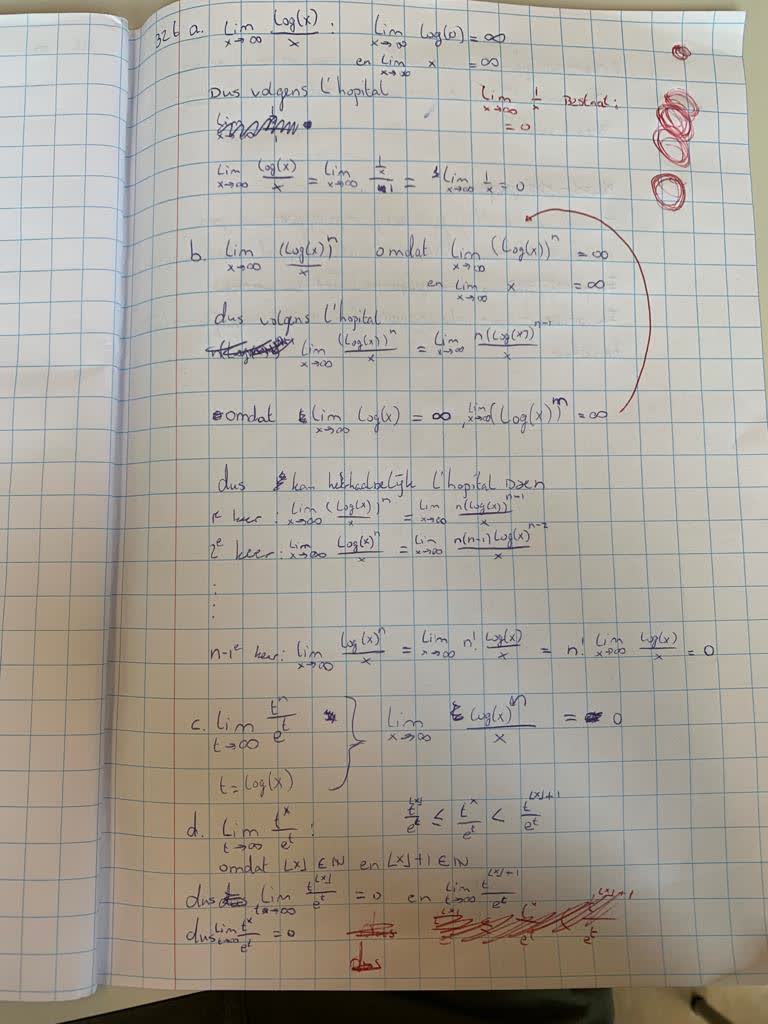 326 a. lim x→∞ Log(x)/x : lim x→∞ Log(x) = ∞
en lim x→∞ x = ∞
Dus volgens L'hopital lim x→∞ 1/x Bestaat:
= 0
lim x→∞ Log(x)/x = lim x→∞ (1/x)/1 = lim x→∞ 1/x = 0
b. lim x→∞ (Log(x))^n/x omdat lim x→∞ (Log(x))^n = ∞
en lim x→∞ x = ∞
dus volgens L'hopital
lim x→∞ (Log(x))^n/x = lim x→∞ n(Log(x))^(n-1)/x
omdat lim x→∞ Log(x) = ∞, lim x→∞ (Log(x))^m = ∞
dus kan herhaadelijk L'hopital Doen
1e keer: lim x→∞ (Log(x))^n/x = lim x→∞ n(Log(x))^(n-1)/x
2e keer: lim x→∞ Log(x)^n/x = lim x→∞ n(n-1)Log(x)^(n-2)/x
⋮
n-1e keer: lim x→∞ Log(x)^n/x = lim x→∞ n! Log(x)/x = n! lim x→∞ Log(x)/x = 0
c. lim t→∞ t^n/e^t } lim x→∞ Log(x)^n/x = 0
t = Log(x)
d. lim t→∞ t^x/e^t : t^⌊x⌋/e^t ≤ t^x/e^t < t^(⌊x⌋+1)/e^t
omdat ⌊x⌋ ∈ ℕ en ⌊x⌋+1 ∈ ℕ
dus lim t→∞ t^⌊x⌋/e^t = 0 en lim t→∞ t^(⌊x⌋+1)/e^t
dus lim t→∞ t^x/e^t = 0